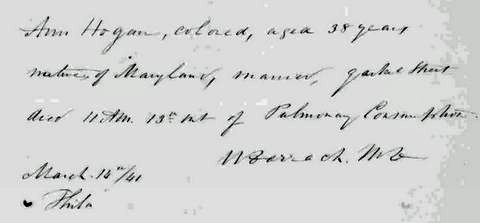 Ann Hogan, colored, aged 38 years
native of Maryland, married, Street
died 11 AM 13th int of Pulmonary Consumption
W Darrach. MD
March 14th/41
Phila